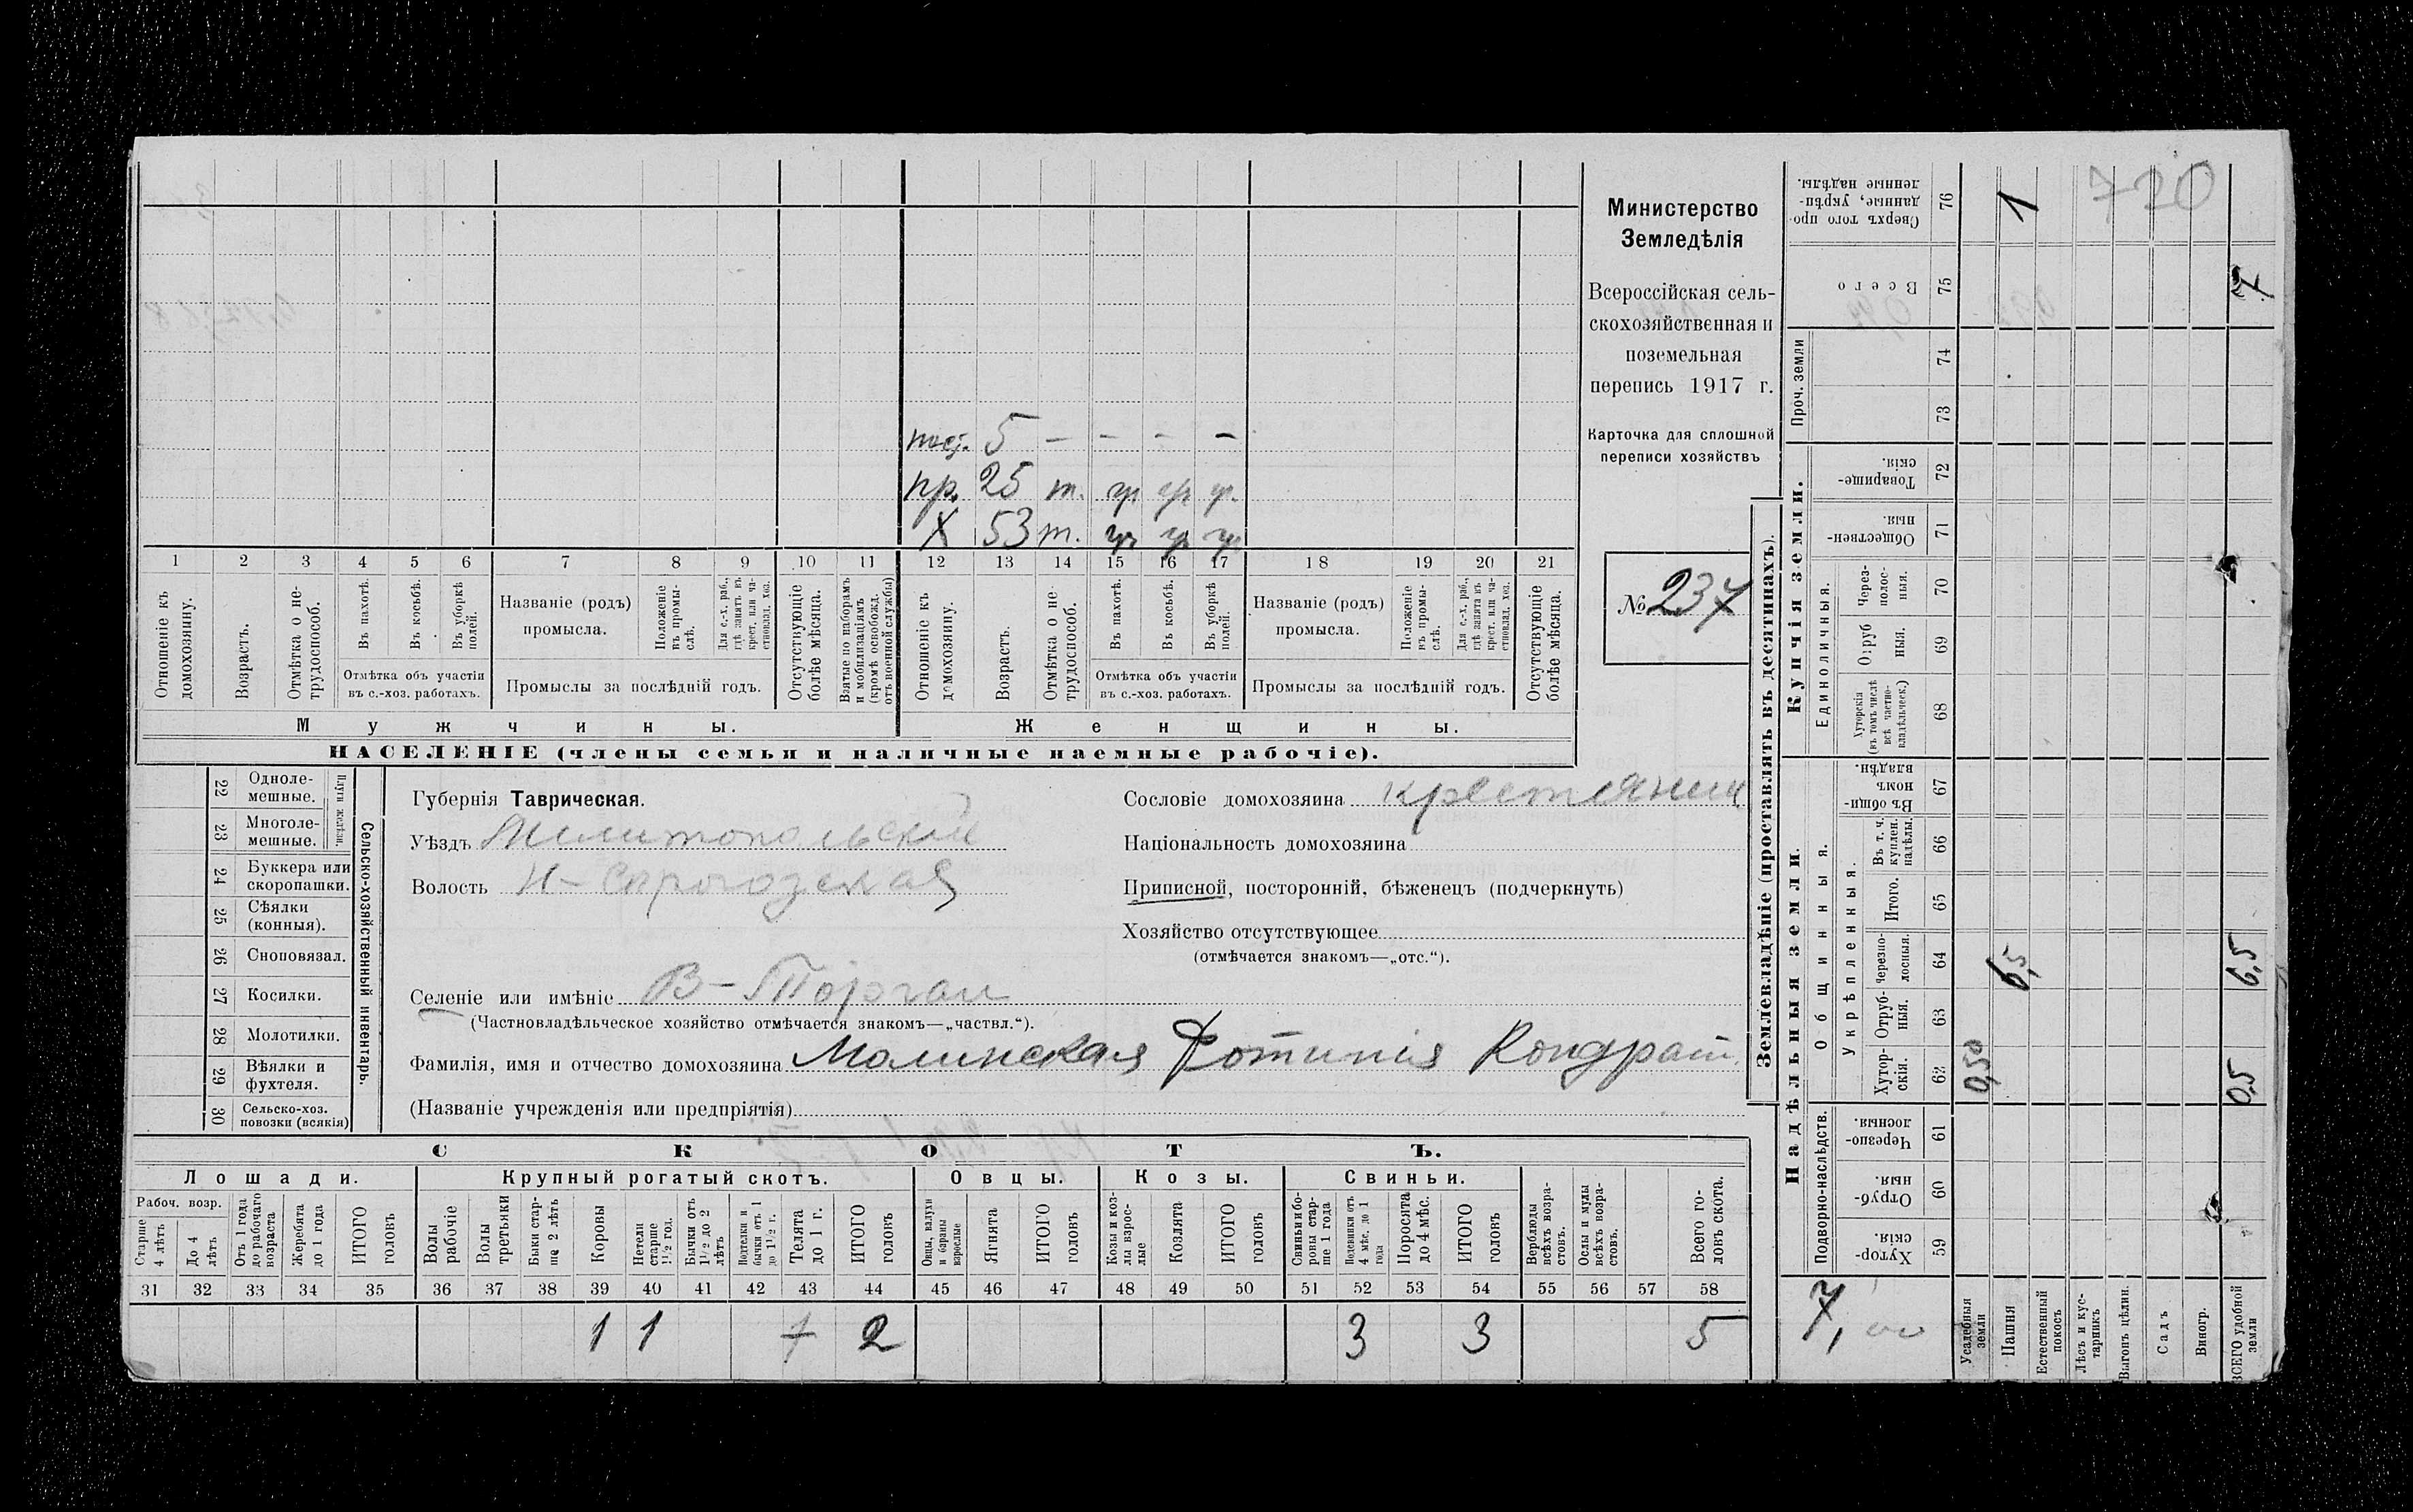 Министерство
Земледѣлія
Всероссійская сель-
скохозяйственная и
поземельная
перепись 1917 г.
Карточка для сплошной
переписи хозяйствъ
№ 237
5 — — — —
пр. 25 т.
X 53 т.
1 2 3 4 5 6 7 8 9 10 11 12 13 14 15 16 17 18 19 20 21
Отношеніе къ домохозяину.
Возрастъ.
Отмѣтка о не-трудоспособ.
Въ пахотѣ.
Въ косьбѣ.
Въ уборкѣ полей.
Отмѣтка объ участіи
въ с.-хоз. работахъ.
Названіе (родъ)
промысла.
Положеніе въ промы-слѣ.
Для с.-х. раб., гдѣ занятъ въ крест. или ча-стновлад. хоз.
Промыслы за послѣдній годъ.
Отсутствующіе болѣе мѣсяца.
Взятые по наборамъ и мобилизаціямъ (кромѣ освобожд. отъ военной службы)
Отношеніе къ домохозяину.
Возрастъ.
Отмѣтка о не-трудоспособ.
Въ пахотѣ.
Въ косьбѣ.
Въ уборкѣ полей.
Отмѣтка объ участіи
въ с.-хоз. работахъ.
Названіе (родъ)
промысла.
Положеніе въ промы-слѣ.
Для с.-х. раб., гдѣ занята въ крест. или ча-стновлад. хоз.
Промыслы за послѣдній годъ.
Отсутствующіе болѣе мѣсяца.
Мужчины. Женщины.
НАСЕЛЕНІЕ (члены семьи и наличные наемные рабочіе).
22 Одноле-мешные.
23 Многоле-мешные.
24 Буккера или скоропашки.
25 Сѣялки (конныя).
26 Сноповязал.
27 Косилки.
28 Молотилки.
29 Вѣялки и фухтеля.
30 Сельско-хоз. повозки (всякія)
Сельско-хозяйственный инвентарь.
Губернія Таврическая.
Уѣздъ Мелитопольскій
Волость Н-Сѣрогозская
Селеніе или имѣніе В-Торгаи
(Частновладѣльческое хозяйство отмѣчается знакомъ—„частвл.“).
Фамилія, имя и отчество домохозяина Молинская Фотинія Кондрат.
(Названіе учрежденія или предпріятія)
Сословіе домохозяина крестянин
Національность домохозяина
Приписной, посторонній, бѣженецъ (подчеркнуть)
Хозяйство отсутствующее
(отмѣчается знакомъ—„отс.“).
СКОТЪ.
Лошади. Крупный рогатый скотъ. Овцы. Козы. Свиньи.
Рабоч. возр.
Старше 4 лѣтъ
До 4 лѣтъ
Отъ 1 года до рабочаго возраста
Жеребята до 1 года
ИТОГО головъ
Волы рабочіе
Волы третьяки
Быки стар-ше 2 лѣтъ
Коровы
Нетели старше 1½ год.
Бычки отъ 1½ до 2 лѣтъ
Подтелки и бычки отъ 1 до 1½ г.
Телята до 1 г.
ИТОГО головъ
Овцы, валухи и бараны взрослые
Ягнята
ИТОГО головъ
Козы и коз-лы взрос-лые
Козлята
ИТОГО головъ
Свиньи и бо-ровы стар-ше 1 года
Подсвинки отъ 4 мѣс. до 1 года
Поросята до 4 мѣс.
ИТОГО головъ
Верблюды всѣхъ возра-стовъ.
Ослы и мулы всѣхъ возра-стовъ.
Всего го-ловъ скота.
31 32 33 34 35 36 37 38 39 40 41 42 43 44 45 46 47 48 49 50 51 52 53 54 55 56 57 58
1 1 1 2 3 3 5
Землевладѣніе (проставлять въ десятинахъ).
Надѣльныя земли. Купчія земли. Проч. земли
Подворно-наслѣдств.
Общинныя.
Укрѣпленныя.
Единоличныя.
Хутор-скія. 59
Отруб-ныя. 60
Черезпо-лосныя. 61
Хутор-скія. 62
Отруб-ныя. 63
Черезпо-лосныя. 64
Итого. 65
Въ т. ч. куплен. надѣлы. 66
Въ общин-номъ владѣн. 67
Хуторскія (въ томъ числѣ всѣ частно-владѣльческ.) 68
Отруб ныя. 69
Через-полос-ныя. 70
Обществен-ныя. 71
Товарище-скія. 72
73
74
Всего 75
Сверхъ того про-данные, укрѣп-ленные надѣлы. 76
7,00
Усадебныя земли
Пашня
Естественный покосъ
Лѣсъ и кус-тарникъ
Выгонъ цѣлин.
Садъ
Виногр.
ВСЕГО удобной земли
0,50
6,5
1
0,5
6,5
7
720